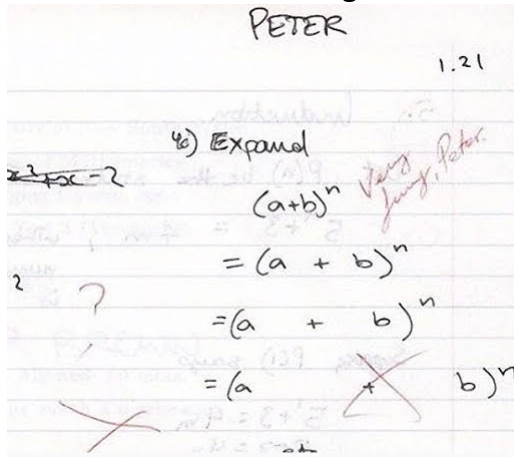 PETER
1.21
Expand
x² + x - 2
(a+b)ⁿ
Very funny, Peter.
= (a + b)ⁿ
2
?
= (a + b)ⁿ
= (a + b)ⁿ